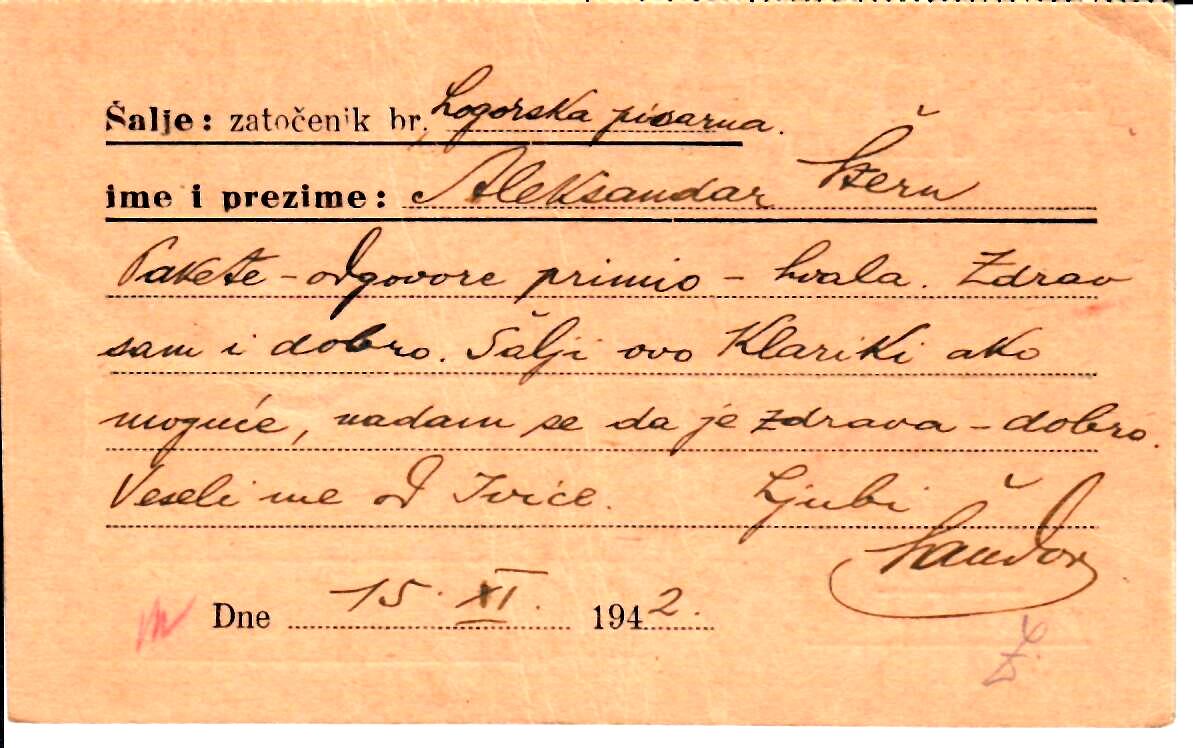 Šalje: zatočenik br. Logorska pisarna.
ime i prezime: Aleksandar Štern
Pakete - odgovore primio - hvala. Zdrav
sam i dobro. Šalji ovo Klariki ako
moguće, nadam se da je zdrava - dobro.
Veseli me od Ivice. Ljubi
Šandor
Dne 15. XI. 1942.